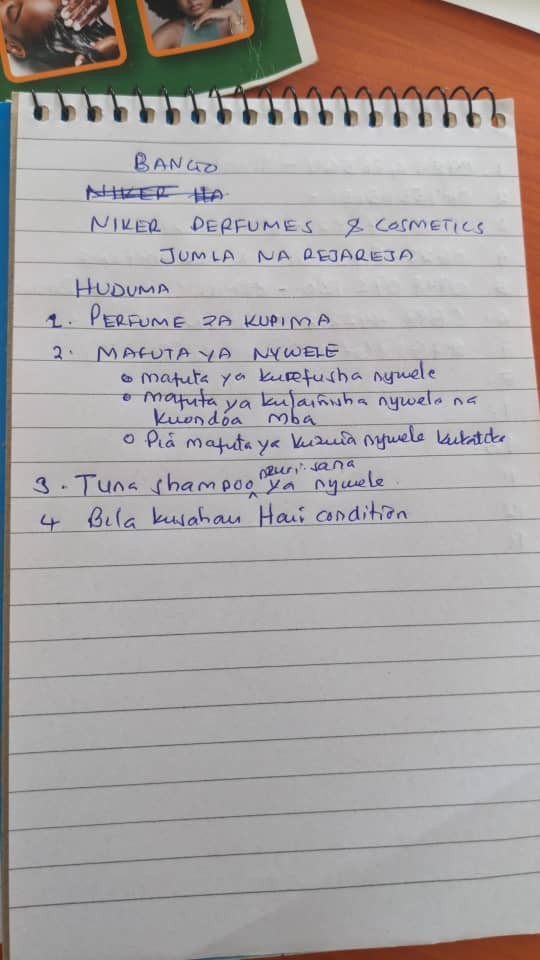 BANGO
NIKER HA
NIKER PERFUMES & COSMETICS
JUMLA NA REJAREJA
HUDUMA
1. PERFUME ZA KUPIMA
2. MAFUTA YA NYWELE
o mafuta ya kurefusha nywele
o mafuta ya kulainisha nywele na
kuondoa mba
o Pia mafuta ya kuzuia nywele kukatika
3. Tuna shampoo nzuri sana ya nywele.
4 Bila kusahau Hair condition